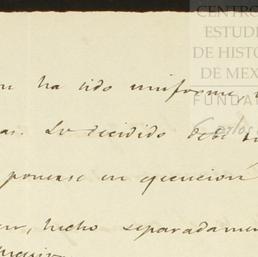 CENTRO
ESTUDI
DE HISTO
DE MEX
FUNDA
ha sido uniforme,
as. Lo decidido debe
ponerse en ejecución
hecho separadamen